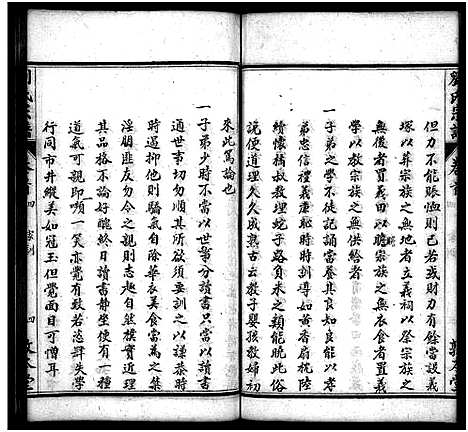 但力不能賑恤則已苟或財力有餘當設義
塚以葬宗族之無地者立義祠以祭宗族之
無後者置義田以贍宗族之無衣食者置義
學以教宗族之無供給者
一子弟之學不徒記誦當養其良知良能以孝
弟忠信禮義廉恥時時訓導如黃香扇枕陸
續懷橘叔敖埋蛇子路負米之類能脫此俗
說便道理久久成熟古云教子嬰孩教婦初
來此篤論也
一子弟少時不當以世事分讀書只當以讀書
通世事切勿順其所欲須要訓之以謙恭時
時遏抑他則驕氣自除華衣美食當為之禁
淫朋匪友勿令之親則志趣自然樸實
其品格不論好醜終日讀書靜坐便有一種
道氣可親即一顰一笑亦覺有致若恣肆失學
行同市井縱美如冠玉但覺面目可憎耳
劉氏宗譜
卷首
四
家訓
敦本堂